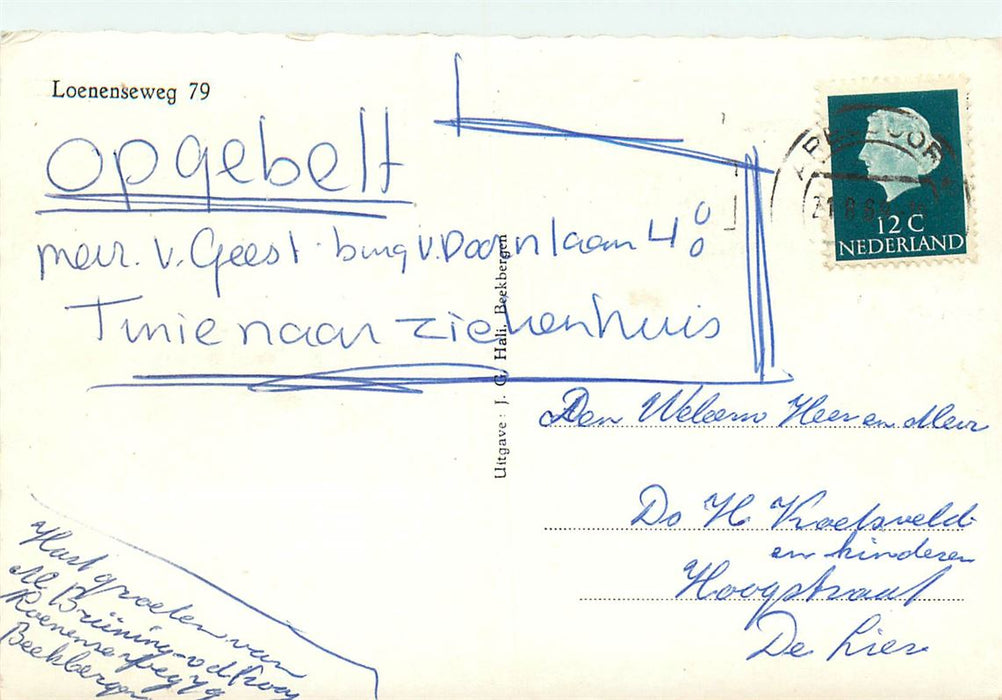 Loenenseweg 79
opgebelt
mevr. v. Geest burg v. Doornlaan 40
Tinie naar ziekenhuis
Uitgave: J. G. Hali, Beekbergen
12 C
NEDERLAND
Den Weleerw Heer en Mevr
Ds H Koetsveld
en kinderen
Hoogstraat
De Lier
Hart groeten van
M Brüning-vd Kooy
Loenenseweg 79
Beekbergen